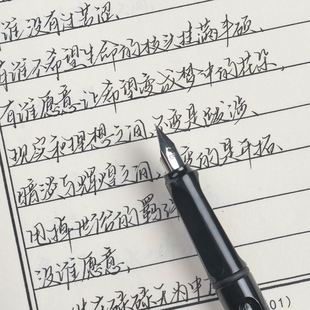 谁没有过苦涩、
有谁不希望生命的枝头挂满丰硕、
有谁愿意让希望变成梦中的花朵、
现实和理想之间，不变是跋涉、
暗淡与辉煌之间，变的是开拓、
甩掉世俗的羁绊
没谁愿意、
碌碌无为中
01)